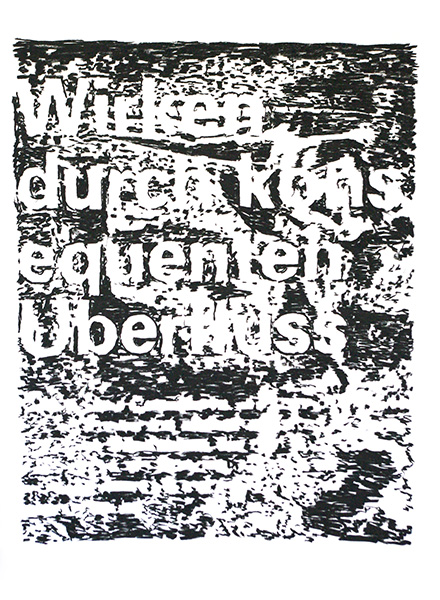 Wirken
durch kons
equenten
Überfluss